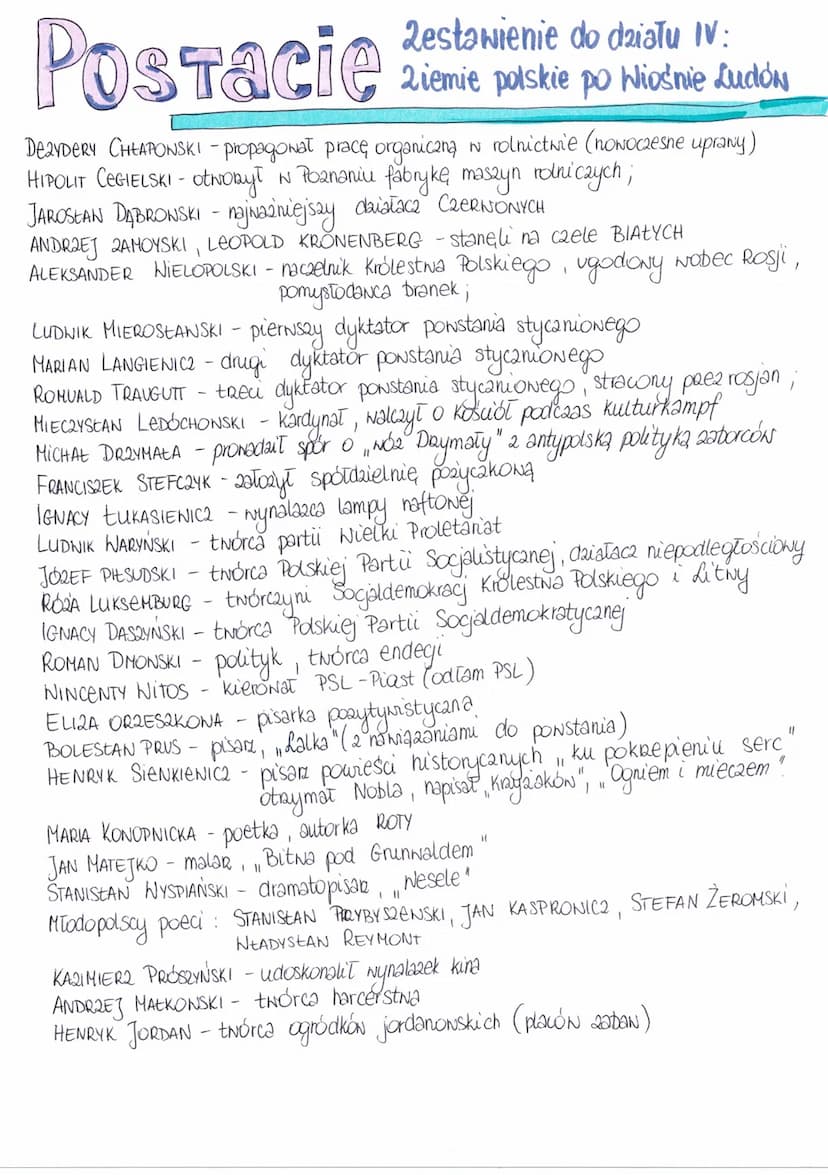 Postacie
Zestawienie do działu IV:
Ziemie polskie po Wiośnie Ludów
DEZYDERY CHŁAPOWSKI – propagował pracę organiczną w rolnictwie (nowoczesne uprawy)
HIPOLIT CEGIELSKI - otworzył w Poznaniu fabrykę maszyn rolniczych;
JAROSŁAW DĄBROWSKI – najważniejszy działacz CZERWONYCH
ANDRZEJ ZAMOYSKI, LEOPOLD KRONENBERG – stanęli na czele BIAŁYCH
ALEKSANDER WIELOPOLSKI – naczelnik Królestwa Polskiego, ugodowy wobec Rosji,
pomysłodawca branek;
LUDWIK MIEROSŁAWSKI – pierwszy dyktator powstania styczniowego
MARIAN LANGIEWICZ – drugi dyktator powstania styczniowego
ROMUALD TRAUGUTT – trzeci dyktator powstania styczniowego, stracony przez rosjan;
MIECZYSŁAW LEDÓCHOWSKI – kardynał, walczył o kościół podczas kulturkampf
MICHAŁ DRZYMAŁA – prowadził spór o „wóz Drzymały" z antypolską polityką zaborców
FRANCISZEK STEFCZYK - założył spółdzielnię pożyczkową
IGNACY ŁUKASIEWICZ – wynalazca lampy naftowej
LUDWIK WARYŃSKI – twórca partii Wielki Proletariat
JÓZEF PIŁSUDSKI – twórca Polskiej Partii Socjalistycznej, działacz niepodległościowy
RÓŻA LUKSEMBURG – twórczyni Socjaldemokracj Królestwa Polskiego i Litwy
IGNACY DASZYŃSKI – twórca Polskiej Partii Socjaldemokratycznej
ROMAN DMOWSKI – polityk, twórca endecji
WINCENTY WITOS - kierował PSL-Piast (odłam PSL)
ELIZA ORZESZKOWA – pisarka pozytywistyczna
BOLESŁAW PRUS – pisarz, „Lalka" (z nawiązaniami do powstania)
HENRYK SIENKIEWICZ - pisarz powieści historycznych „ku pokrzepieniu serc"
otrzymał Nobla, napisał „Krzyżaków", „Ogniem i mieczem"
MARIA KONOPNICKA – poetka, autorka ROTY
JAN MATEJKO – malarz, „Bitwa pod Grunwaldem"
STANISŁAW WYSPIAŃSKI – dramatopisarz, „Wesele"
Młodopolscy poeci: STANISŁAW PRZYBYSZEWSKI, JAN KASPROWICZ, STEFAN ŻEROMSKI,
WŁADYSŁAW REYMONT
KAZIMIERZ PRÓSZYŃSKI – udoskonalił wynalazek kina
ANDRZEJ MAŁKOWSKI – twórca harcerstwa
HENRYK JORDAN – twórca ogródków jordanowskich (placów zabaw)